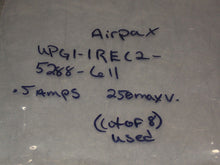 Airpax
UPG1-1REC2-
5288-611
.5 Amps 250maxV.
(Lot of 8)
used